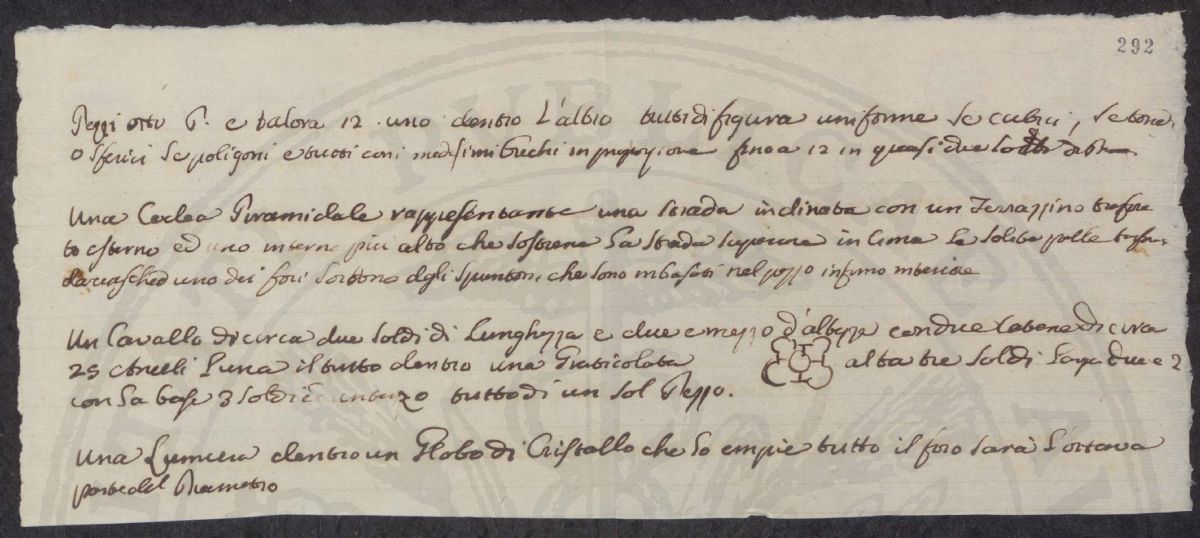 292
Pezzi otto P. e talora 12 uno dentro l'altro tutti di figura uniforme se cubici, se
o sferici se poligoni e tutti con i medesimi buchi in proporzione fino a 12 in quasi due
Una Coclea Piramidale rappresentante una strada inclinata con un Terrazzino
to esterno ed uno interno più alto che sostiene la strada superiore in cima le solite palle
ed uno dei fori sortono degli spuntoni che sono imbasati nel pezzo infimo interiore
Un Cavallo di circa due soldi di lunghezza e due e mezzo d'altezza con due Catene di circa
25 Anelli l'una il tutto dentro una Graticolata alta tre soldi larga due e 2
con la base 3 soldi tutto di un sol Pezzo.
Una Lumiera dentro un Globo di Cristallo che lo empie tutto il foro sarà l'ottava
parte del Diametro